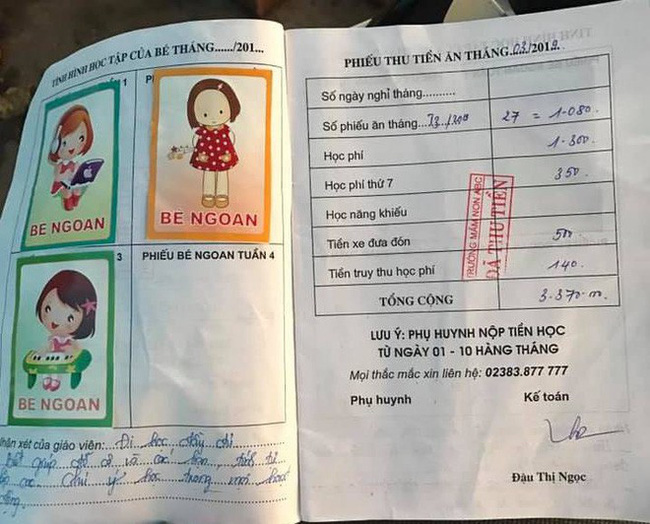 TÌNH HÌNH HỌC TẬP CỦA BÉ THÁNG....../201...
1
BÉ NGOAN
BÉ NGOAN
3
PHIẾU BÉ NGOAN TUẦN 4
BÉ NGOAN
nhận xét của giáo viên: Đi học đầy đủ
Biết giúp đỡ cô và các bạn,
Chú ý học trong mọi hoạt
động
PHIẾU THU TIỀN ĂN THÁNG 03/2019
Số ngày nghỉ tháng..........
Số phiếu ăn tháng 27 = 1.080
Học phí 1.300
Học phí thứ 7 350
Học năng khiếu
Tiền xe đưa đón 500
Tiền truy thu học phí 140
TỔNG CỘNG 3.370
TRƯỜNG MẦM NON ABC
ĐÃ THU TIỀN
LƯU Ý: PHỤ HUYNH NỘP TIỀN HỌC
TỪ NGÀY 01 - 10 HÀNG THÁNG
Mọi thắc mắc xin liên hệ: 02383.877 777
Phụ huynh Kế toán
Đậu Thị Ngọc